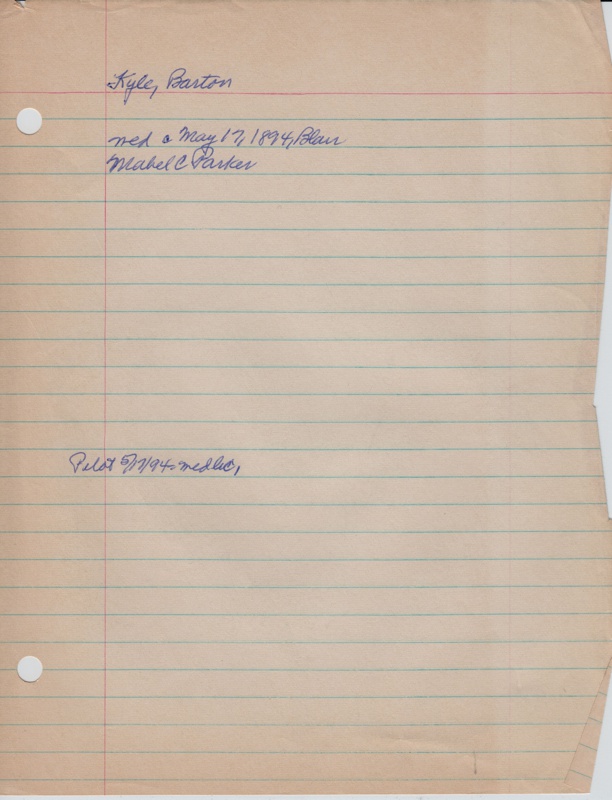 Kyle, Barton
med a May 17, 1894, Blair
Mabel C Parker
Pilot 5/17/94: medlic,